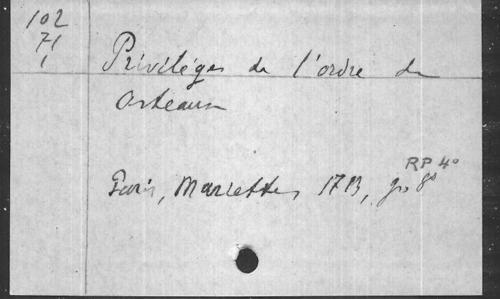 102
71
1
Privilèges de l'ordre de
Cisteaux
RP 4°
Paris, Mariette, 1713, gr 8°